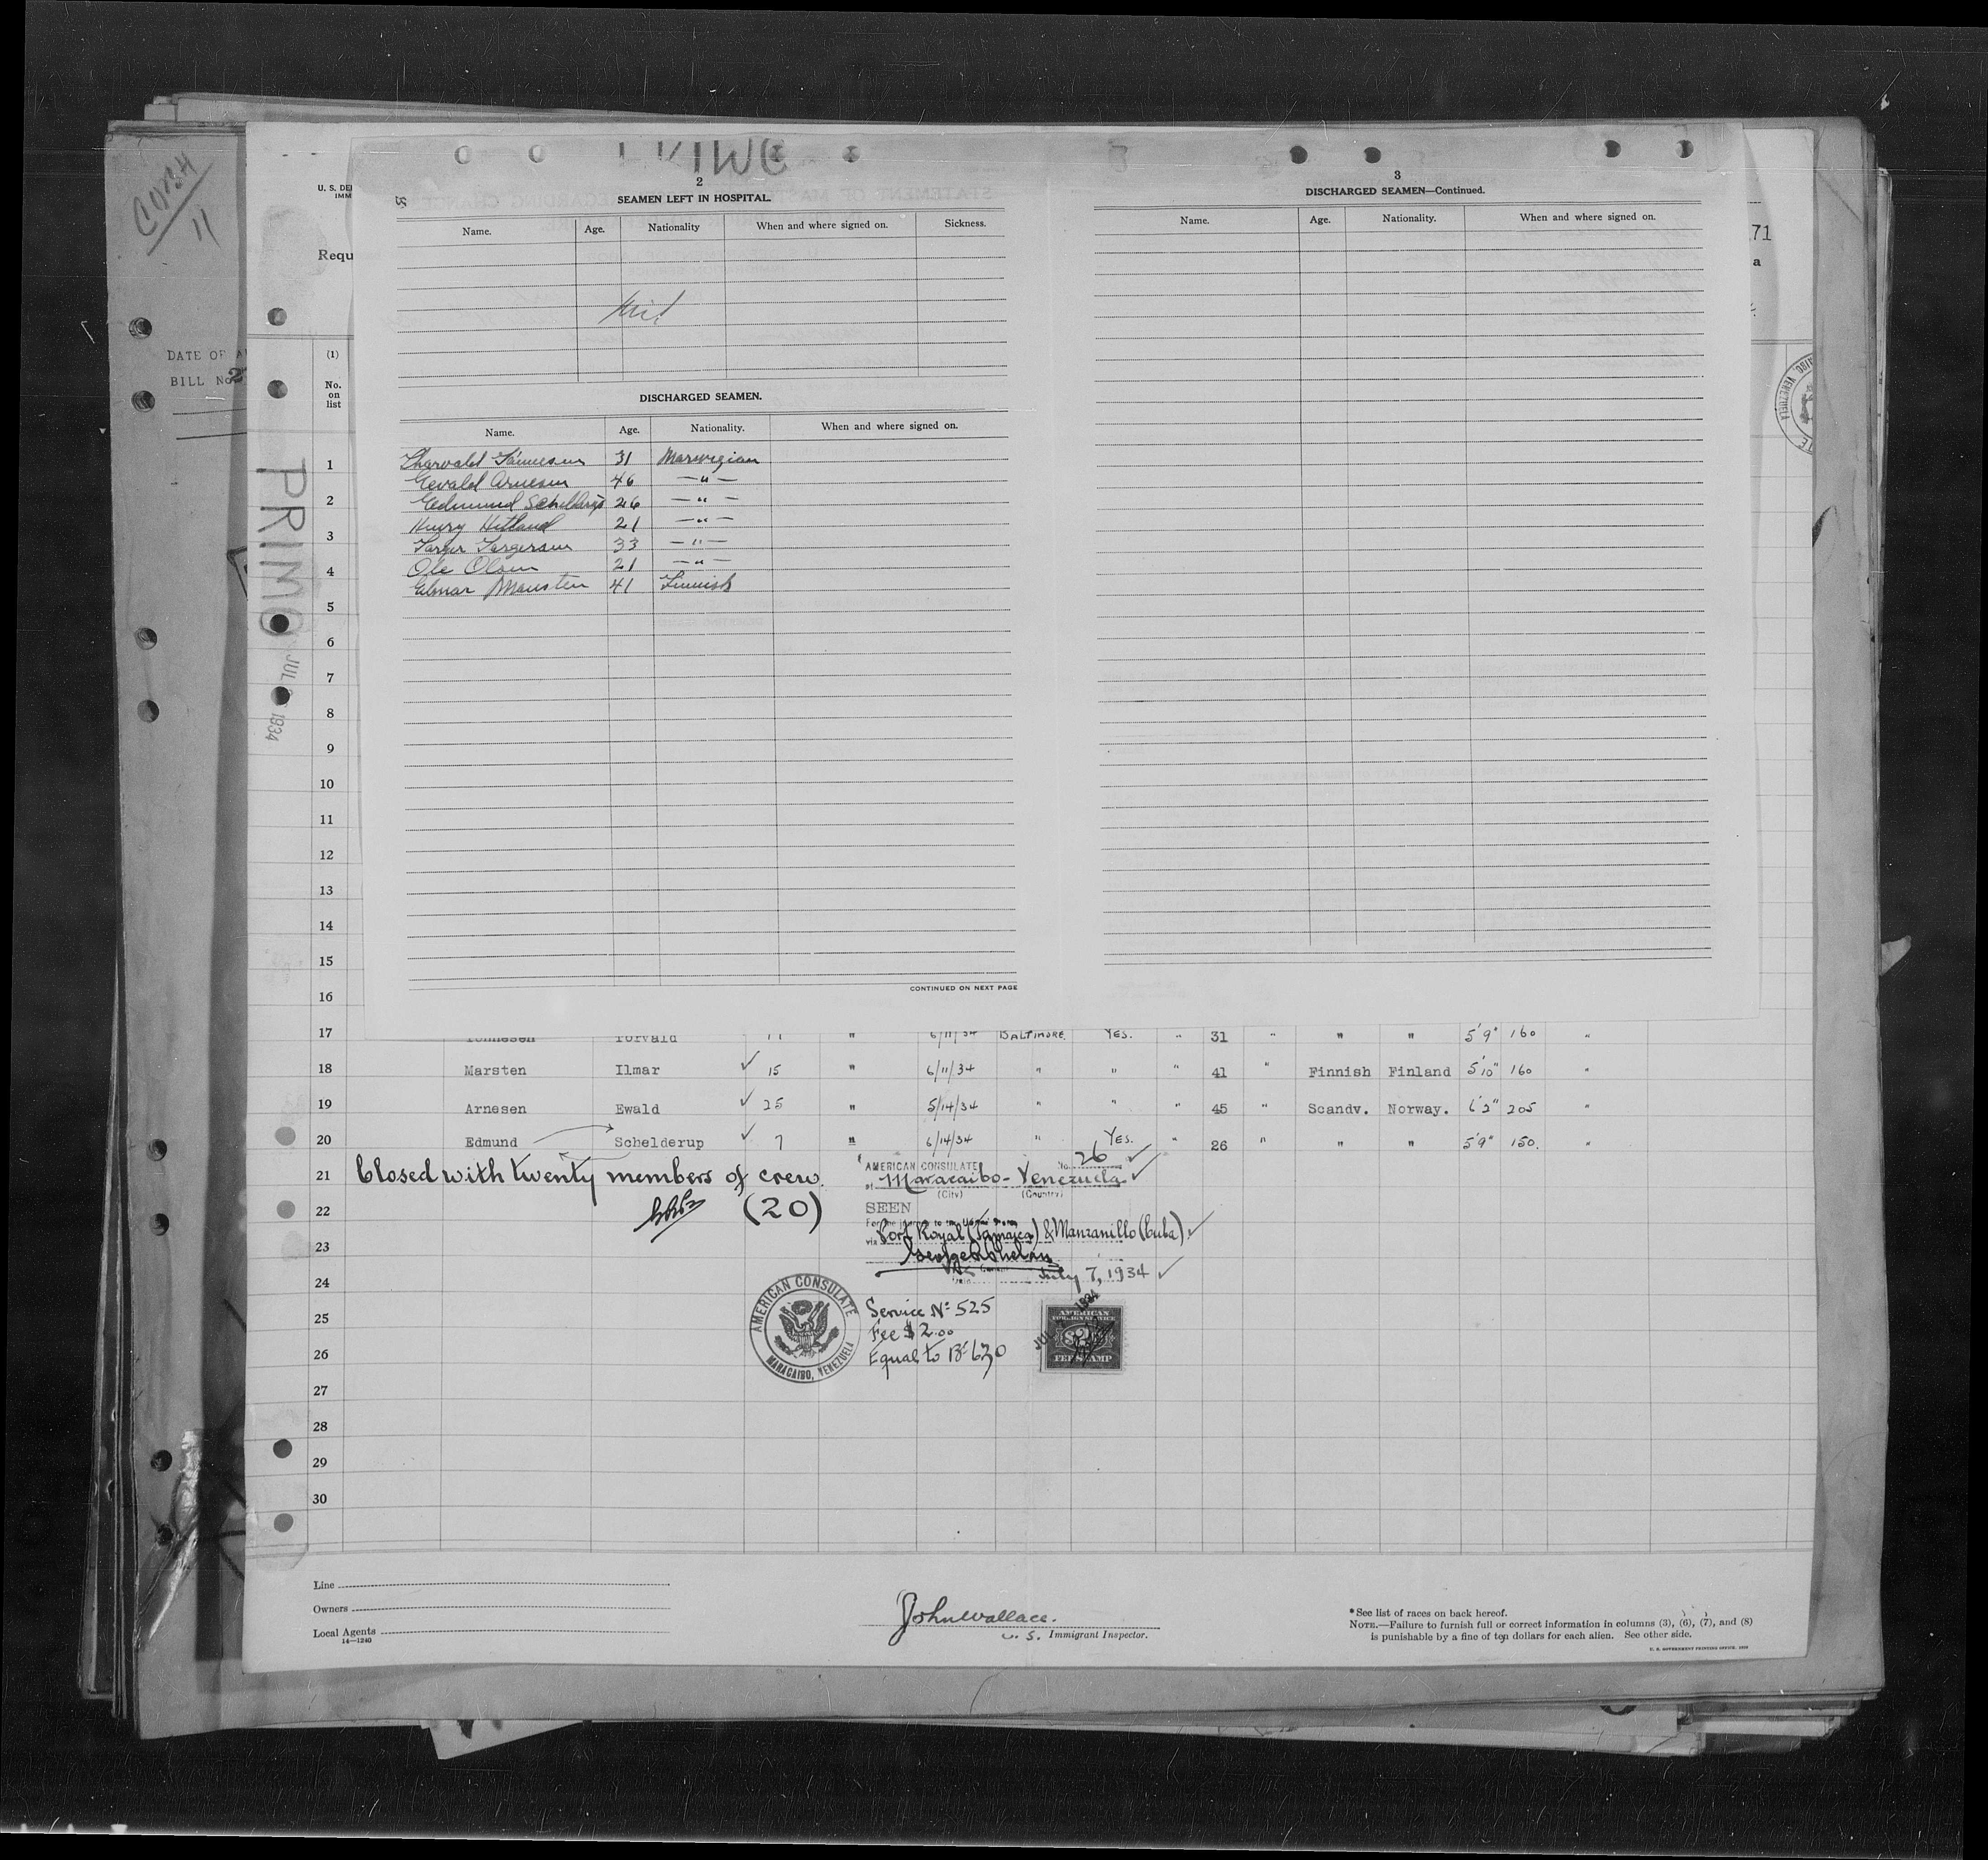 CORS4
11
U. S. DE
IMM
Requ
DATE OF A
BILL No. 2
PRIMO
JUL 1934
2
SEAMEN LEFT IN HOSPITAL.
Name. Age. Nationality When and where signed on. Sickness.
Nil
DISCHARGED SEAMEN.
Name. Age. Nationality. When and where signed on.
31 Norwegian
Ewald Arnesen 46 — " —
Edmund Schelderup 26 — " —
Henry Hetland 21 — " —
33 — " —
Ole Olsen 21 — " —
Elmar Marsten 41 Finnish
CONTINUED ON NEXT PAGE
3
DISCHARGED SEAMEN—Continued.
Name. Age. Nationality. When and where signed on.
71
a
(1)
No.
on
list
1
2
3
4
5
6
7
8
9
10
11
12
13
14
15
16
17 Tonnesen Torvald 11 " 6/11/34 BALTIMORE. YES. " 31 " " " 5'9" 160 "
18 Marsten Ilmar ✓ 15 " 6/11/34 " " " 41 " Finnish Finland 5'10" 160 "
19 Arnesen Ewald ✓ 25 " 5/14/34 " " " 45 " Scandv. Norway. 6'2" 205 "
20 Edmund Schelderup ✓ 7 " 6/14/34 " YES. " 26 " " " 5'9" 150. "
21 Closed with twenty members of crew.
22 (20)
23
24
25
26
27
28
29
30
AMERICAN CONSULATE No. 26 ✓
at Maracaibo - Venezuela ✓
(City) (Country)
SEEN
For the journey to the United States
via Port Royal (Jamaica) & Manzanillo (Cuba) ✓
George R Phelan
Vice Consul
July 7, 1934 ✓
AMERICAN CONSULATE
MARACAIBO, VENEZUELA
Service Nº 525
Fee $ 2.00
Equal to Bs 6.30
JUL 1934
AMERICAN
FOREIGN SERVICE
2
FEE STAMP
Line
Owners
Local Agents
14—1240
John Wallace.
U. S. Immigrant Inspector.
* See list of races on back hereof.
NOTE.—Failure to furnish full or correct information in columns (3), (6), (7), and (8)
is punishable by a fine of ten dollars for each alien. See other side.
U. S. GOVERNMENT PRINTING OFFICE